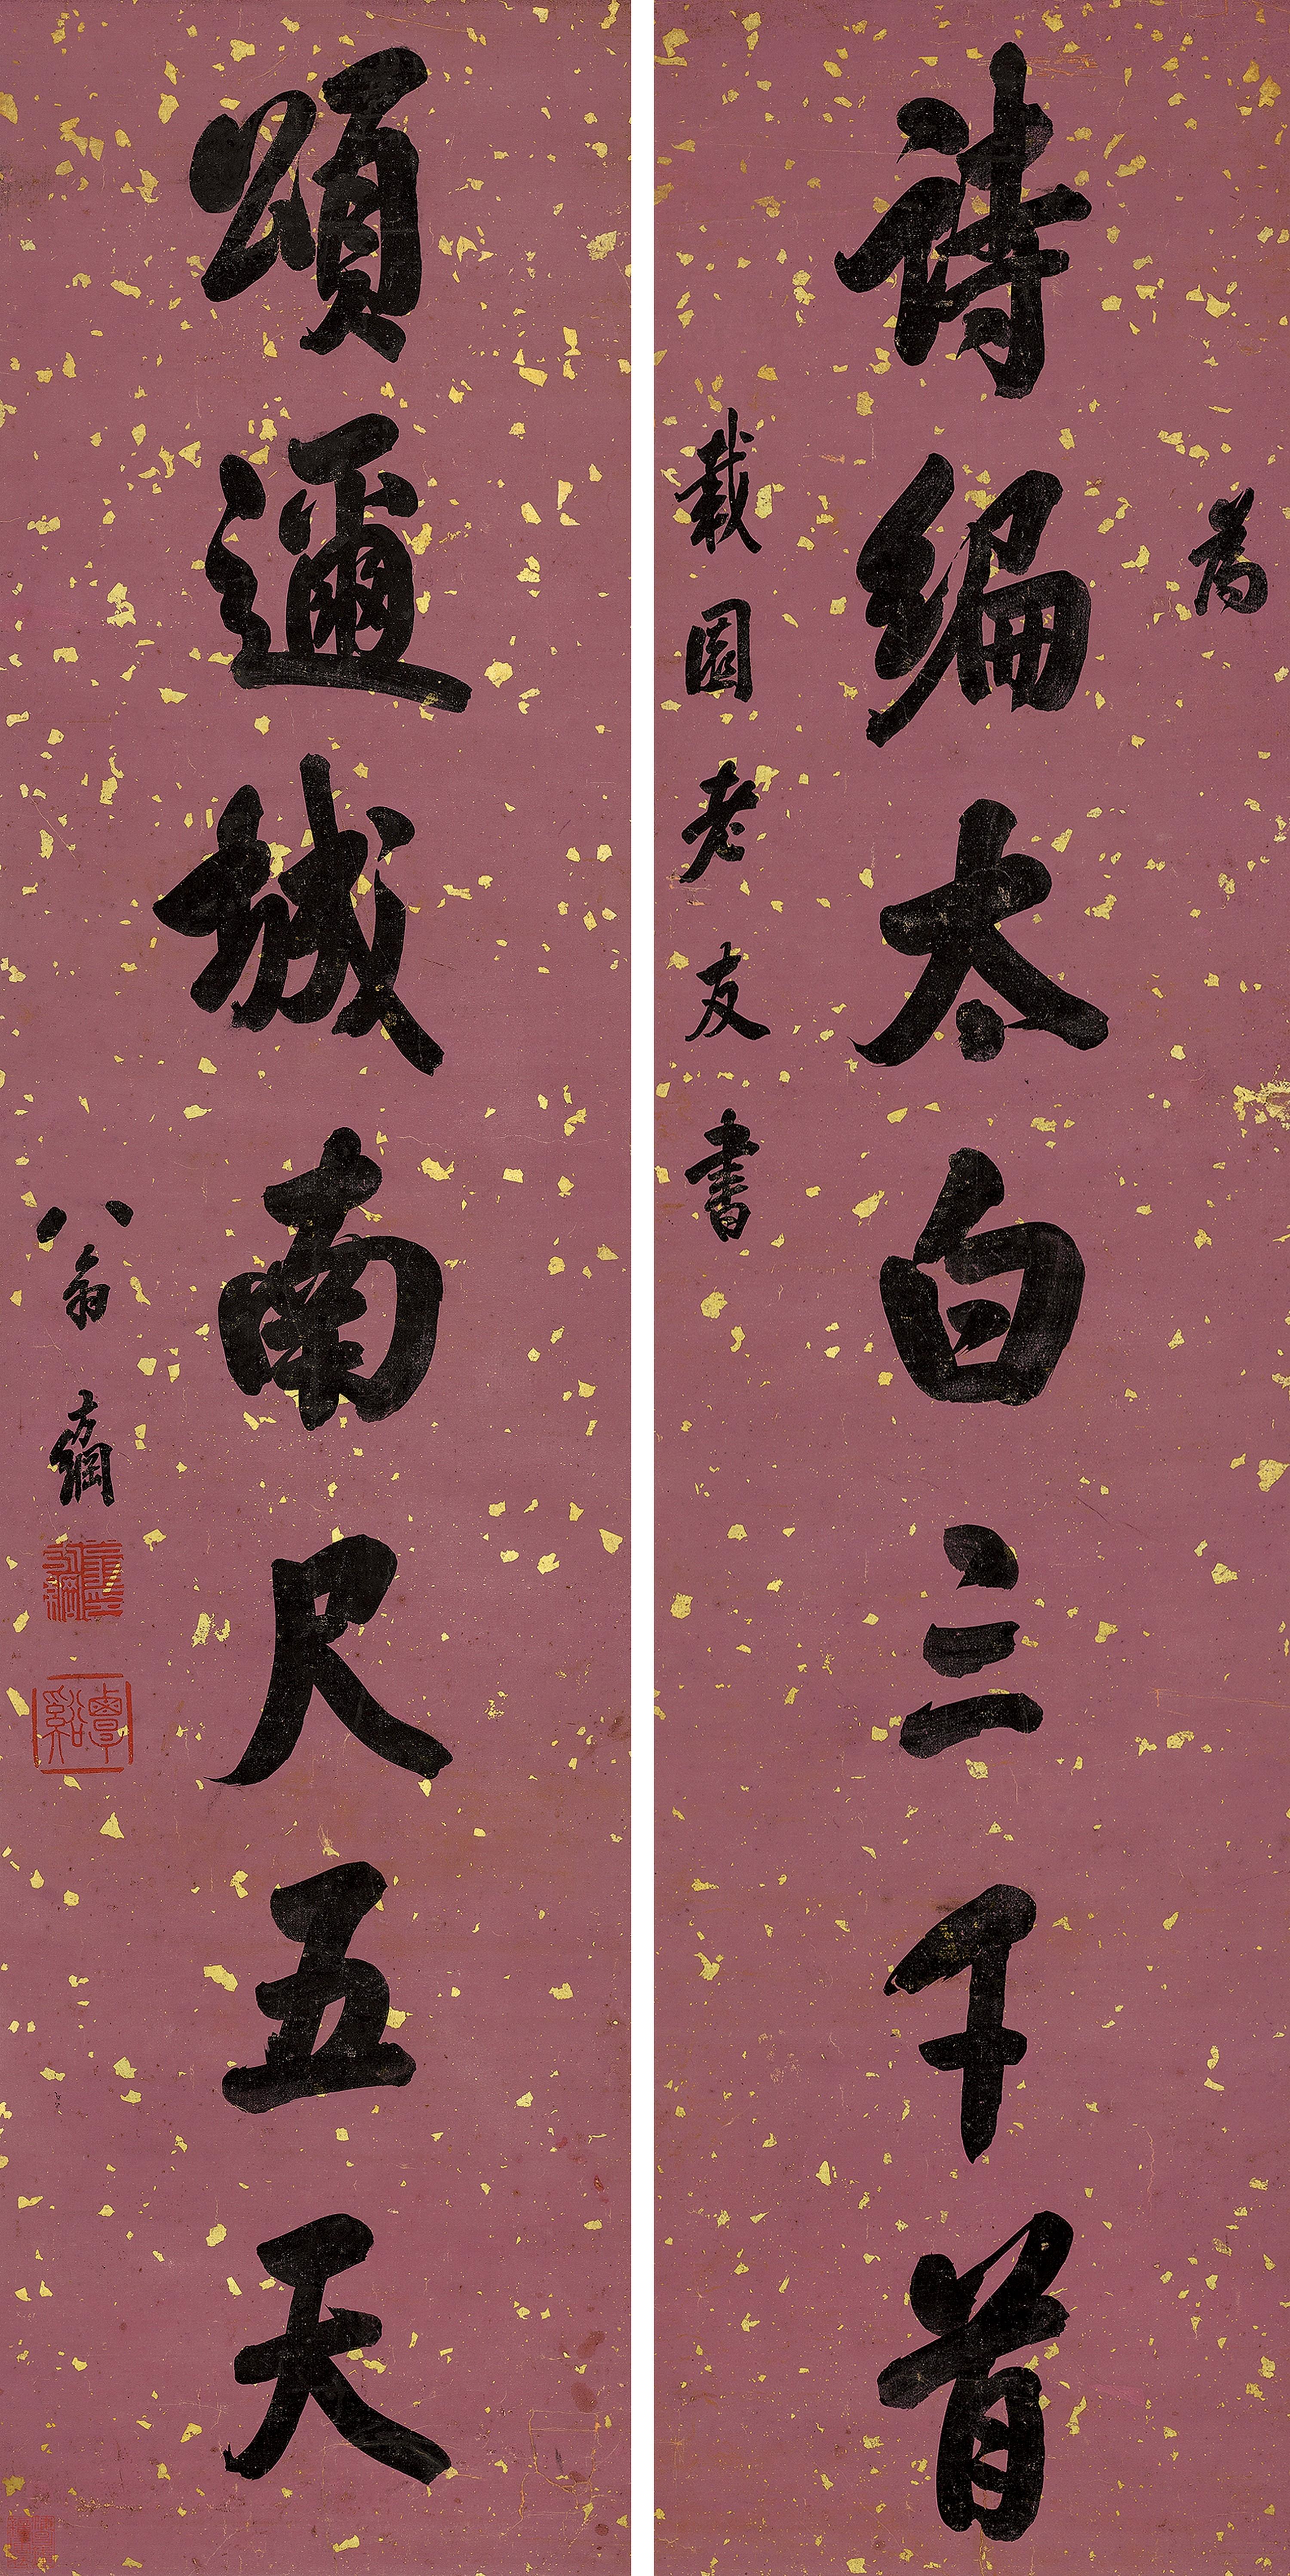 為
詩編太白三千首
載園老友書
頌邇城南尺五天
翁方綱
覃谿